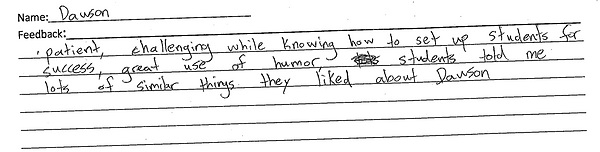 Name: Dawson
Feedback:
. patient, challenging while knowing how to set up students for
success, great use of humor students told me
lots of similar things they liked about Dawson